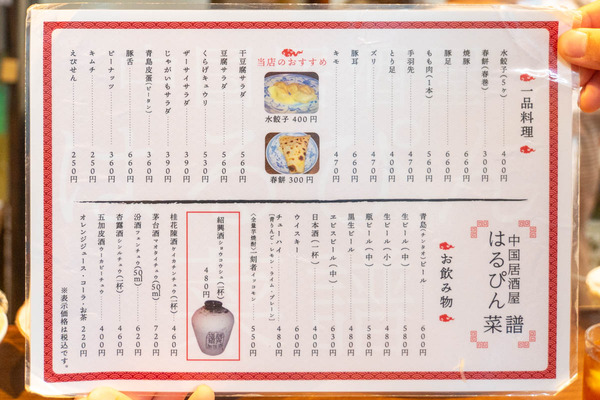 一品料理
水餃子(5ヶ) 400円
春餅(春巻) 300円
焼豚 660円
豚足 660円
もも肉(1本) 560円
手羽先 400円
とり足 470円
ズリ 470円
豚耳 660円
キモ 470円
当店のおすすめ
水餃子 400円
春餅 300円
干豆腐サラダ 560円
豆腐サラダ 560円
くらげキュウリ 530円
ザーサイサラダ 390円
じゃがいもサラダ 390円
青島皮蛋(ピータン) 360円
豚舌 660円
ピーナッツ 360円
キムチ 250円
えびせん 250円
中国居酒屋
はるぴん菜譜
お飲み物
青島(チンタオ)ビール 600円
生ビール(中) 550円
生ビール(小)
瓶ビール(中)
黒生ビール
ヱビスビール(中) 630円
日本酒(一杯) 400円
ウイスキー
チューハイ 480円
(青りんご・レモン・ライム・プレーン)
(全量芋焼酎)一刻者 イッコモン 550円
紹興酒 ショウコウシュ(二杯) 480円
桂花陳酒 ケイカチンチュウ(一杯) 460円
茅台酒 マオタイチュウ(50ml) 720円
汾酒 フェンチュウ(50ml) 620円
杏露酒 シンルチュウ(一杯) 460円
五加皮酒 ウーカピーチュウ 400円
オレンジジュース・コーラ・お茶 220円
※表示価格は税込です。